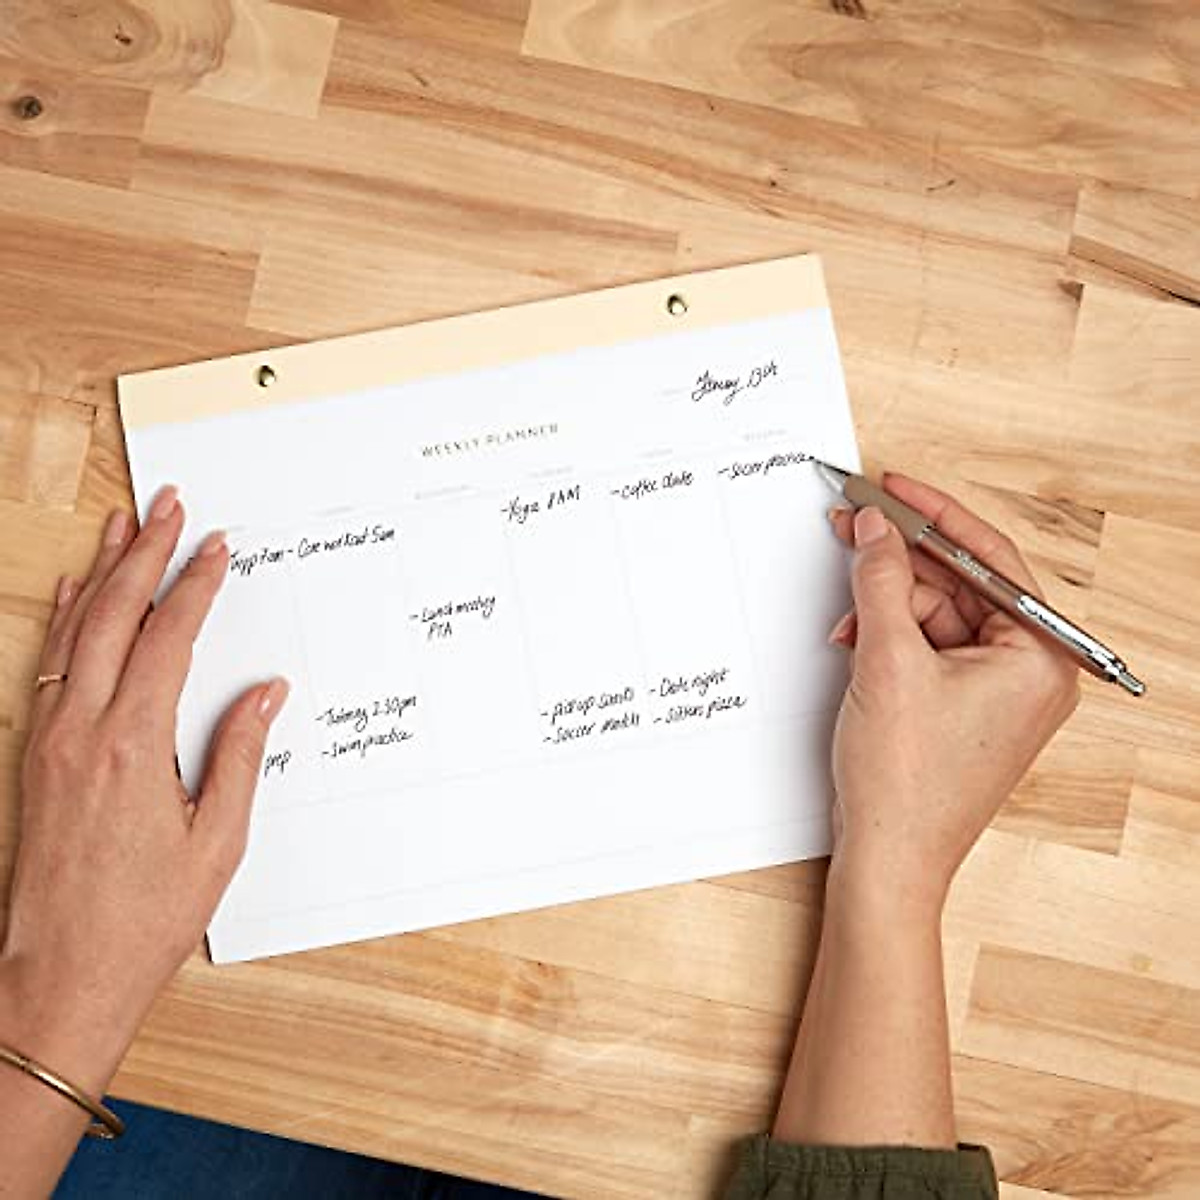 January 13th
WEEKLY PLANNER
7am
- Core workout 5am
- Yoga 8AM
- coffee date
- Soccer practice
- Lunch meeting
PTA
prep
- Training 2:30pm
- Swim practice
- pick up
- Soccer match
- Date night
- Sitters place